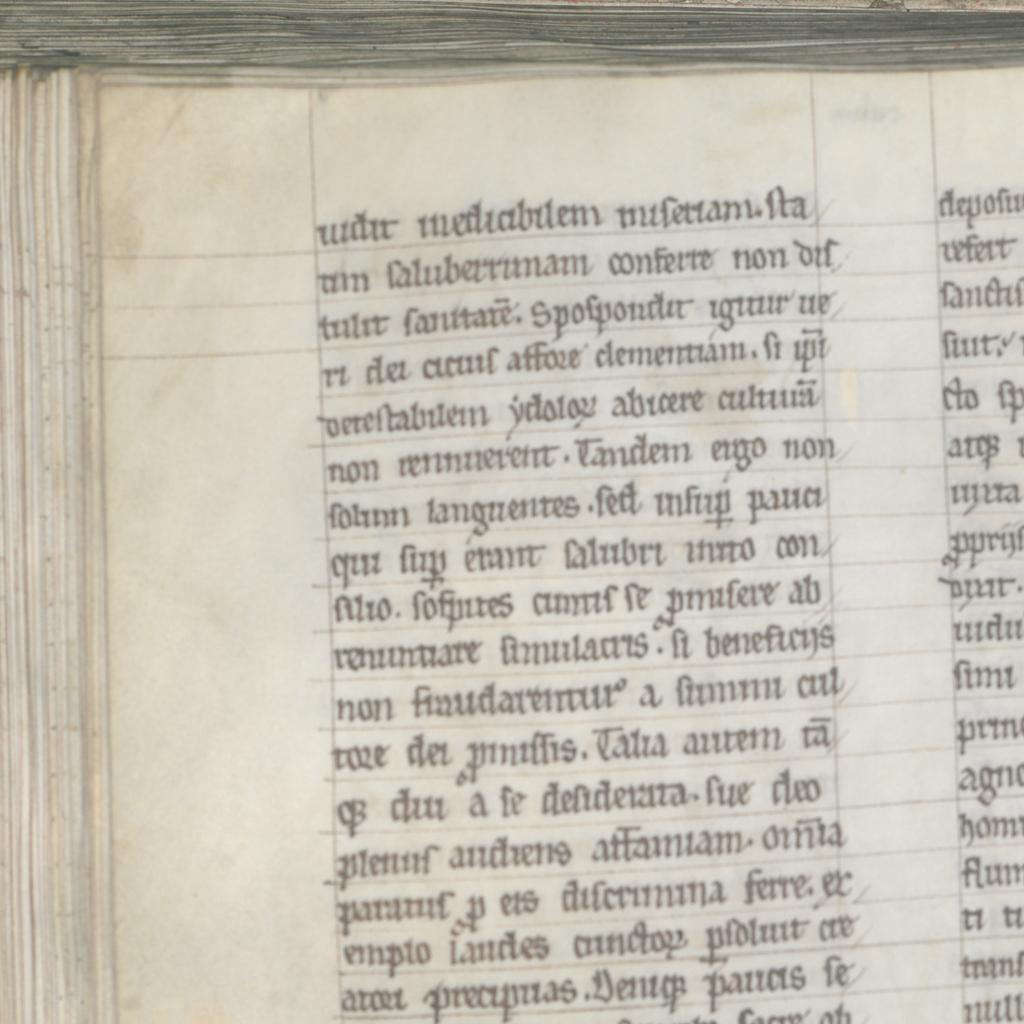 uidit medicabilem miseriam. sta
tim saluberrimam conferre non dis
tulit sanitatē. Spospondit igitur ue
ri dei citius affore clementiam. si ip̄i
detestabilem ydoloꝝ abicere culturā
non rennuerent. Tandem ergo non
solum languentes. sed insup̱ pauci
qui sup̱ erant salubri inito con
silio. sospites cunctis se ꝓmisere ab
renuntiare simulacris. si beneficijs
non fraudarentur a summi cul
tore dei ꝓmissis. Talia autem tā
qȝ diu a se desiderata. sue deo
plenus audiens affamiam. om̄ia
paratus ꝓ eis discrimina ferre. ex
emplo laudes cunctoꝝ ꝑsoluit cre
atori precipuas. Deniqȝ paucis se
deposu
refert
sanctis
siut
cto sp
atqȝ
iuxta
ꝓprijs
duit.
uidu
simi
prin
agno
hom
flum
ti
trans
null